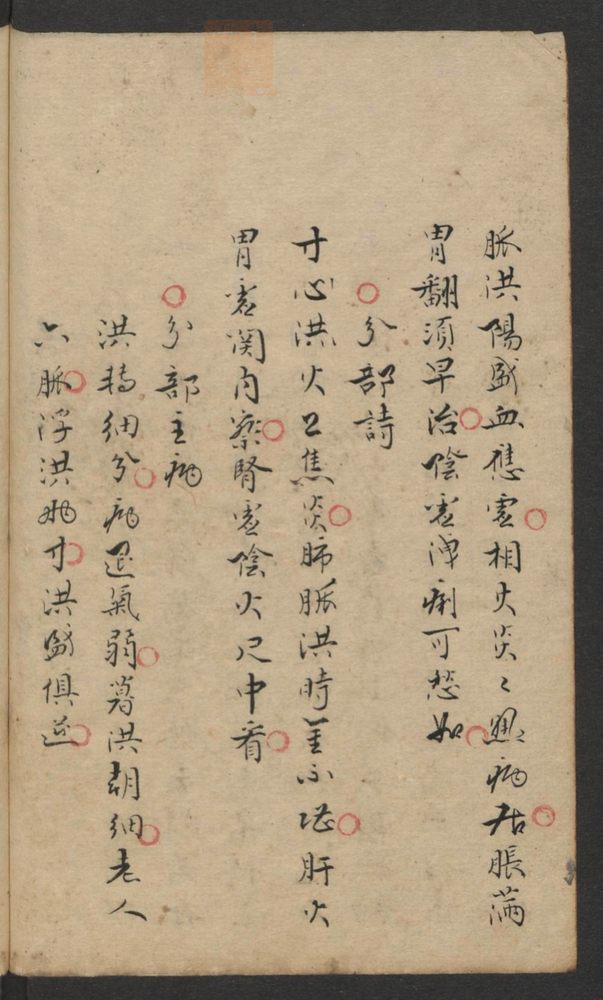 脈洪陽盛血應虛相火炎〻熱病居脹滿
胃翻須早治陰虛洩痢可愁如
分部詩
寸心洪火上焦炎肺脈洪時金不堪肝火
胃虛関內察腎虛陰火尺中看
分部主病
洪轉細分病退氣弱暮洪朝細老人
六脈浮洪女寸洪盛俱逆